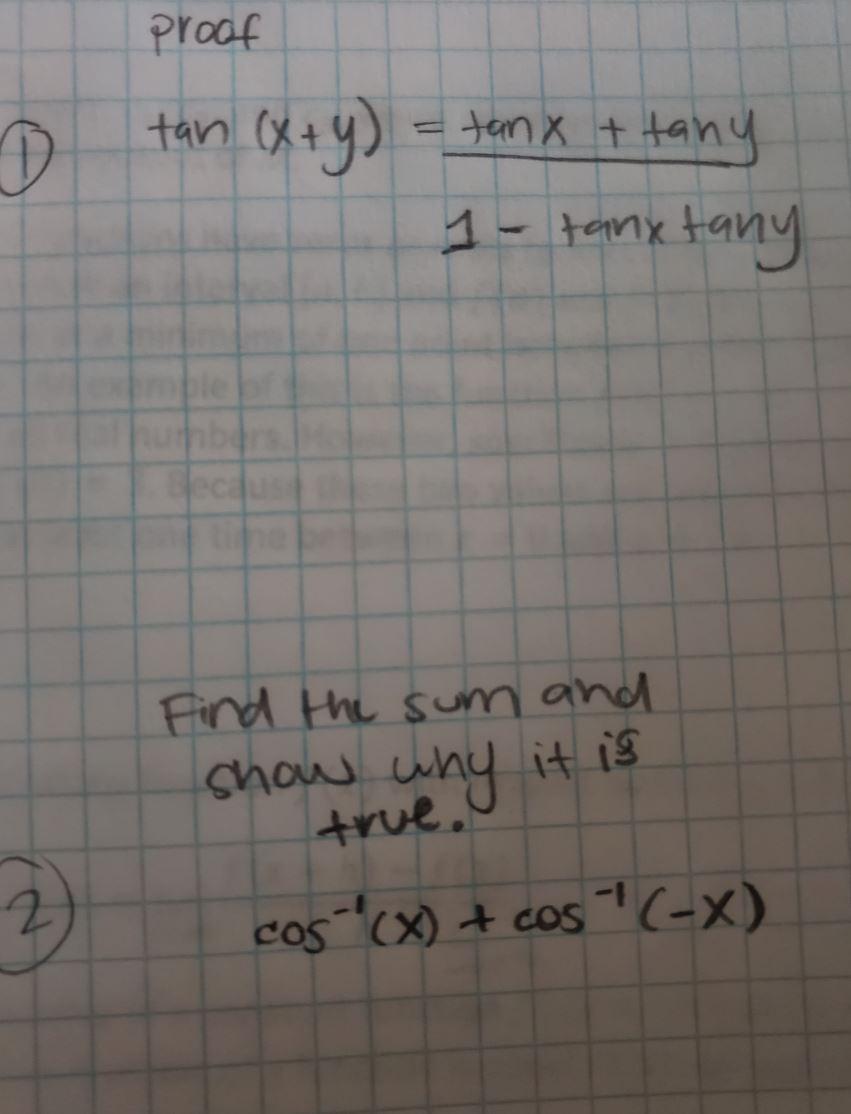 proof
① tan (x+y) = tanx + tany
1 - tanx tany
Find the sum and
show why it is
true.
② cos⁻¹(x) + cos⁻¹(-x)